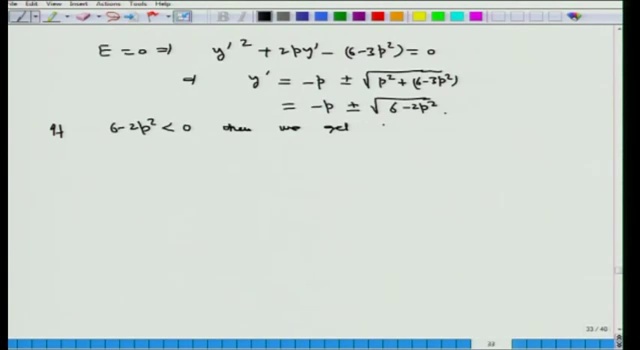 Me View Insert Actions Tools Help
E = 0 ⇒ y'² + 2py' - (6-3p²) = 0
⇒ y' = -p ± √p² + (6-3p²)
= -p ± √6-2p² .
If 6-2p² < 0 then we get
33 / 40
33